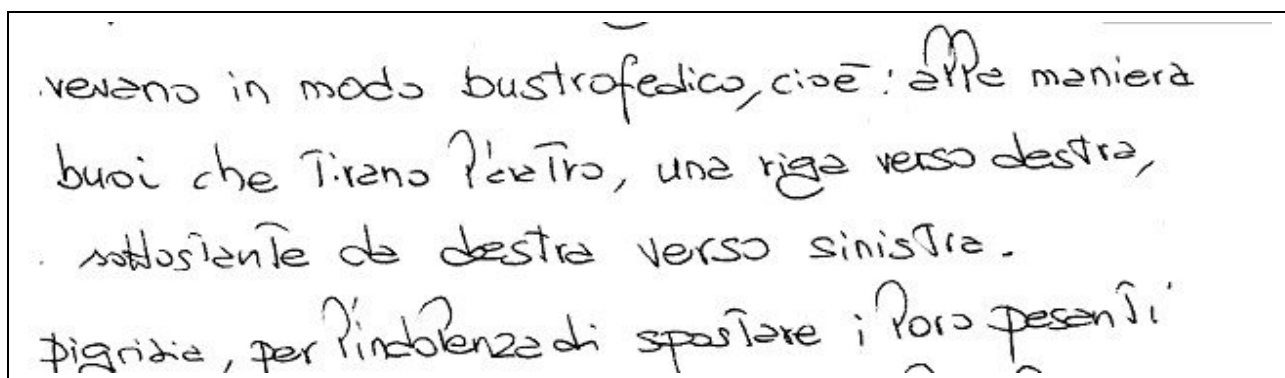 vevano in modo bustrofedico, cioè: alla maniera
buoi che tirano l'aratro, una riga verso destra,
sottostante da destra verso sinistra.
pigrizia, per l'indolenza di spostare i loro pesanti